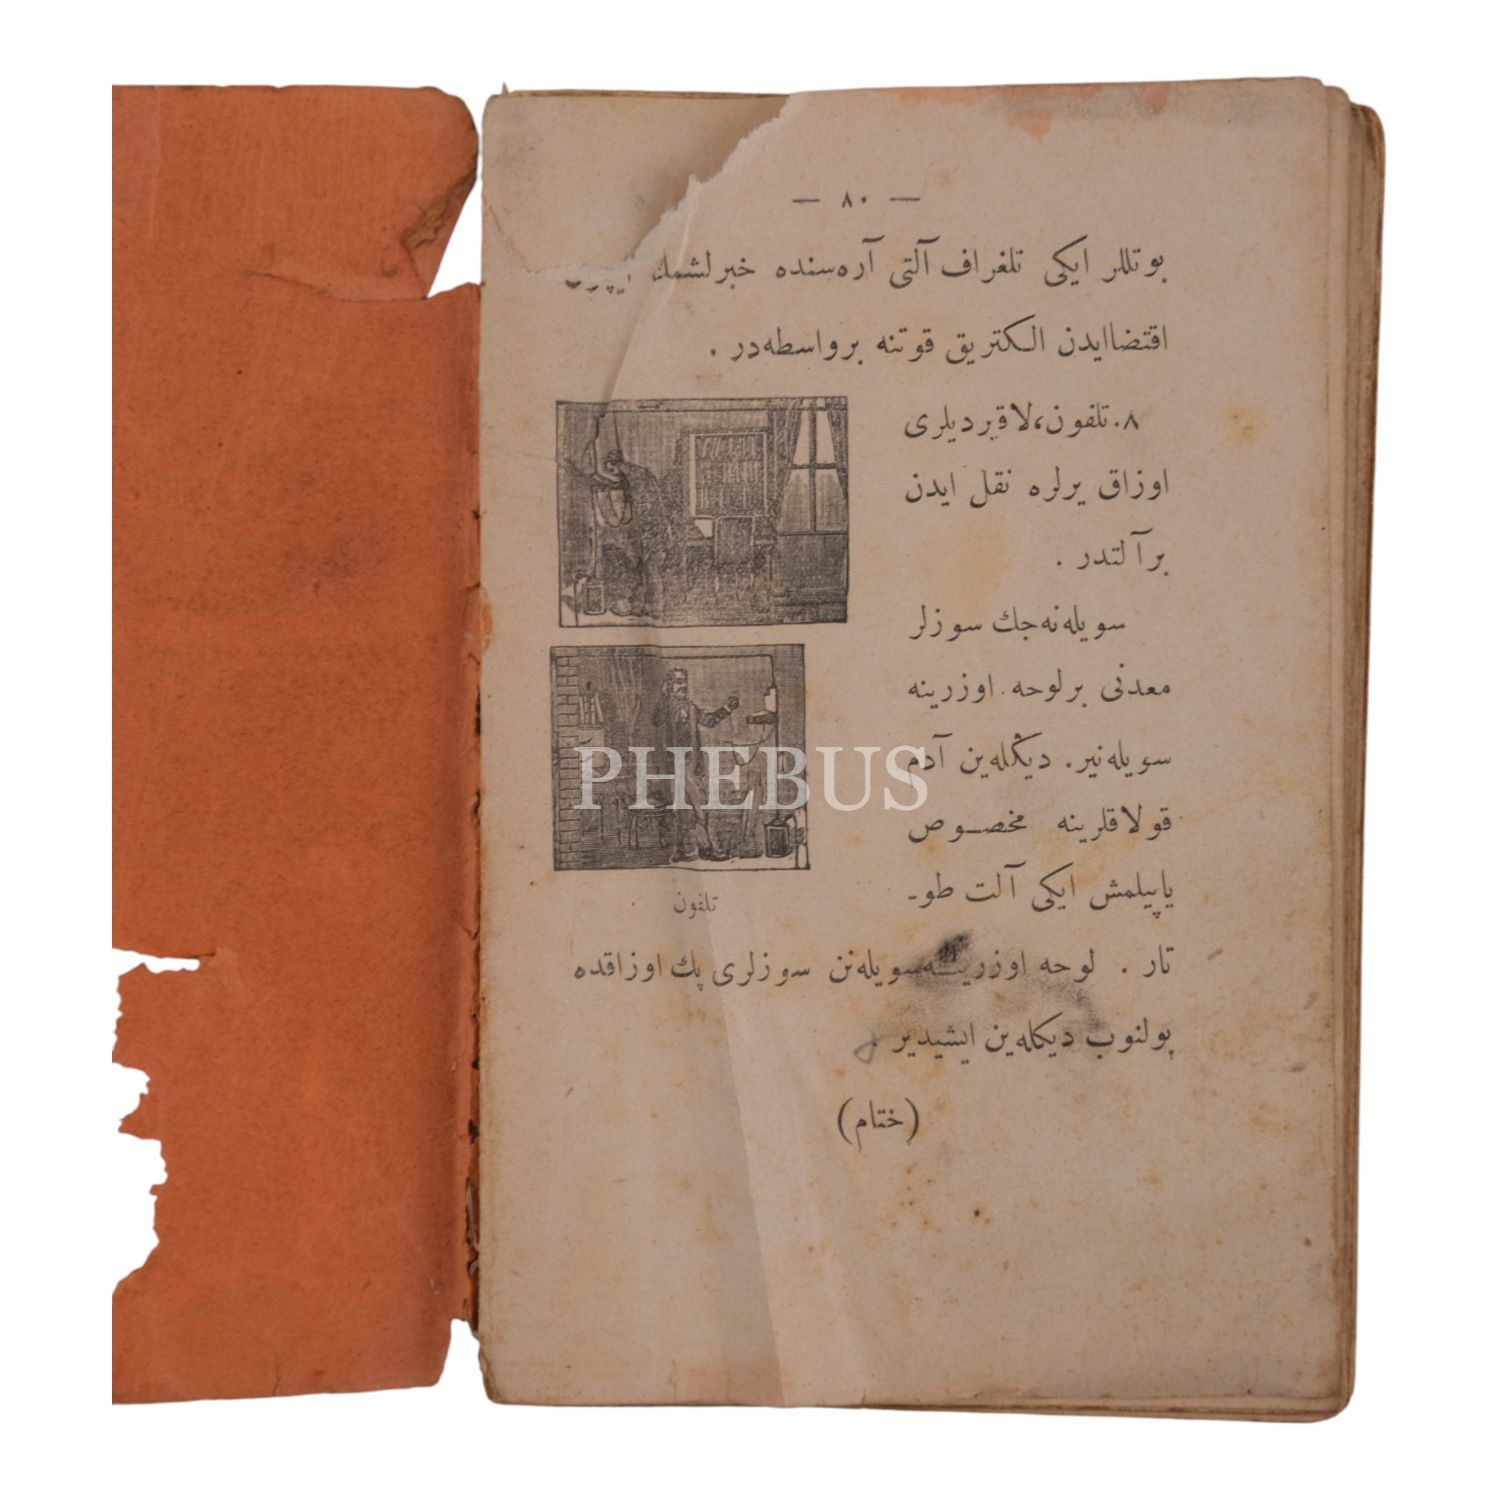 — ٨٠ —
بوتللر ایکی تلغراف آلتی آره‌سنده خبرلشمك
اقتضاایدن الکتریق قوتنه برواسطه‌در .
٨. تلفون، لاقیردیلری
اوزاق یرلره نقل ایدن
برآلتدر .
سویله‌نه‌جك سوزلر
معدنی برلوحه اوزرینه
سویله‌نیر. دیڭله‌ین آدم
قولاقلرینه مخصوص
یاپیلمش ایکی آلت طو-
تار . لوحه اوزرینه سویله‌نن سوزلری پك اوزاقده
بولنوب دیکله‌ین ایشیدیر .
(ختام)
تلفون
PHEBUS